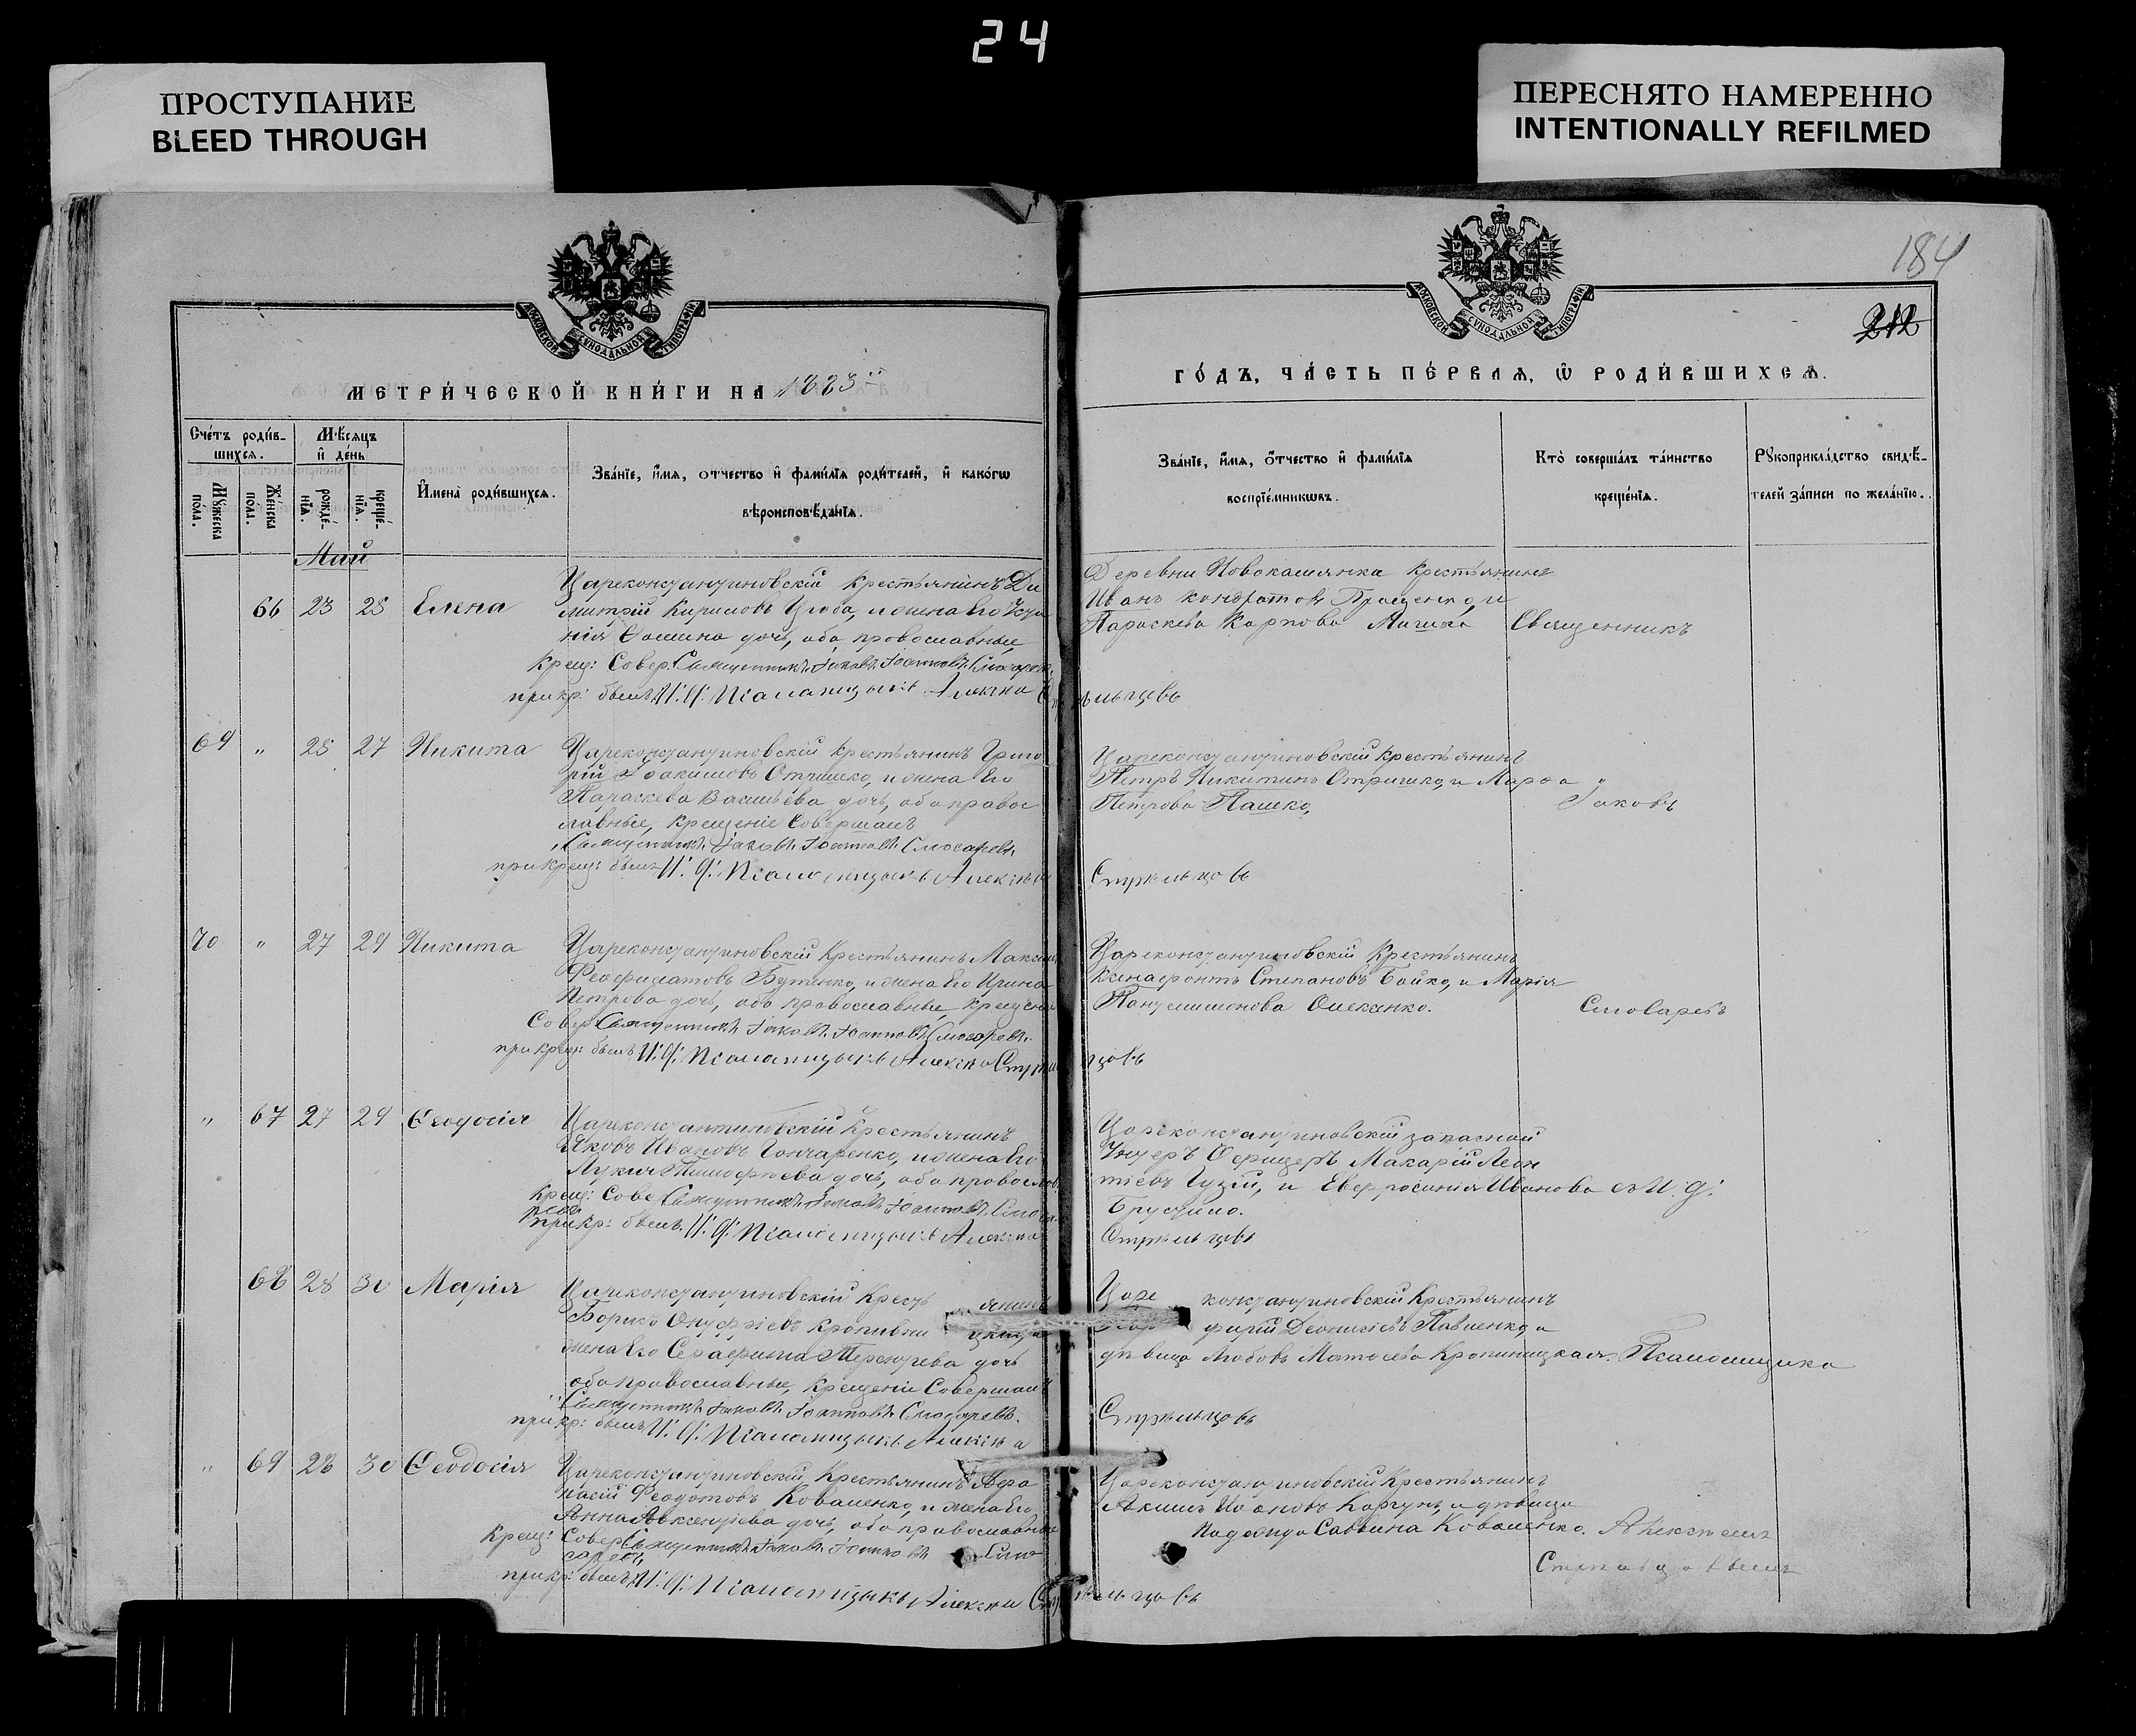 24
ПРОСТУПАНИЕ
BLEED THROUGH
ПЕРЕСНЯТО НАМЕРЕННО
INTENTIONALLY REFILMED
184
212
МОСКОВСКОЙ СѴНОДАЛЬНОЙ ТИПОГРАФІИ
МОСКОВСКОЙ СѴНОДАЛЬНОЙ ТИПОГРАФІИ
МЕТРИ́ЧЕСКОЙ КНИ́ГИ НА 1883
ГО́ДЪ, ЧА́СТЬ ПЕ́РВАѦ, Ѡ РОДИ́ВШИХСѦ.
Сче́тъ роди́в-
шихсѧ.
Мѣ́сѧцъ
и́ де́нь
Мꙋ́жеска
по́ла.
Же́нска
по́ла.
рожде́-
нїѧ.
креще́-
нїѧ.
И҆мена̀ роди́вшихсѧ.
Зва́нїе, и́мѧ, о́тчество и́ фами́лїѧ роди́телей, и́ како́гѡ
вѣроисповѣ́данїѧ.
Зва́нїе, и́мѧ, о́тчество и́ фами́лїѧ
воспрїе́мникѡвъ.
Кто̀ соверша́лъ та́инство
креще́нїѧ.
Рꙋкоприкла́дство свидѣ́-
телей за́писи по жела́нїю.
Май
66 23 25 Елена
Цареконстантиновскій крестьянинъ Ди
митрій Кириловъ Цюба, и жена Его
Ѳомина дочь, оба православные,
Крещ: Совер. Священникъ Іаковъ Іоанновъ
при кр: былъ И. д: Псаломщика Алексѣй
Деревни Новокаменка крестьянинъ
Иванъ Кондратовъ и
Параскева Карпова
Священникъ
69 " 25 27 Никита
Цареконстантиновскій крестьянинъ Григо
рій Іоакимовъ Отришко, и жена Его
Параскева Васильева дочь, оба правос
лавные, крещеніе Совершалъ
Священникъ Іаковъ Іоанновъ Слюсаревъ
при крещ: былъ И. д: Псаломщика Алексѣй Стрѣльцовъ
Цареконстантиновскій крестьянинъ
Петръ Никитинъ Отришко, и Марѳа
Петрова Пашко,
Іаковъ
70 " 27 29 Никита
Цареконстантиновскій Крестьянинъ Максим
Феофилатовъ Бутенко, и жена Его Ирина
Петрова дочь, оба православные, крещеніе
Совер. Священникъ Іаковъ Іоанновъ Слюсаревъ
при крещ: былъ И. д: Псаломщика Алексѣй Стрѣльцовъ
Цареконстантиновскій Крестьянинъ
Ксенафонтъ Степановъ Бойко, и Марія
Пантелимонова Омеленко.
Слюсаревъ
" 67 27 29 Ѳеодосія
Цареконстантиновскій Крестьянинъ
Яковъ Ивановъ Гончаренко, и жена Его
Лукія Тимофѣева дочь, оба православ
Крещ: Совер Священникъ Іаковъ Іоанновъ
при кр: былъ И. д: Псаломщика Алексѣй
Цареконстантиновскій запасной
Унтеръ Офицеръ Макарій Леон
тіевъ Гузій, и Евфросинія Иванова
Стрѣльцовъ
съ И. д:
68 28 30 Марія
Цареконстантиновскій Крестьянинъ
Борисъ Онуфріевъ Кропивницкій, и
жена Его Серафима дочь
оба православные, крещеніе Совершалъ
Священникъ Іаковъ Іоанновъ Слюсаревъ.
при кр: былъ И. д: Псаломщика Алексѣй
Цареконстантиновскій Крестьянинъ
Діонисіевъ Павленко, и
дѣвица Любовь Матѳеева Кропивницкая.
Стрѣльцовъ
Псаломщика
" 69 28 30 Ѳеодосія
Цареконстантиновскій, Крестьянинъ Афа
насій Феодотовъ Коваленко, и жена Его
Анна Авксентіева дочь, оба православные
Крещ: Совер Священникъ Іаковъ Іоанновъ Слю
саревъ,
при кр: былъ И. д: Псаломщика Алексѣй Стрѣльцовъ
Цареконстантиновскій Крестьянинъ
Акимъ Ивановъ и дѣвица
Надежда Саввина Коваленко.
Алексѣемъ
Стрѣльцовымъ